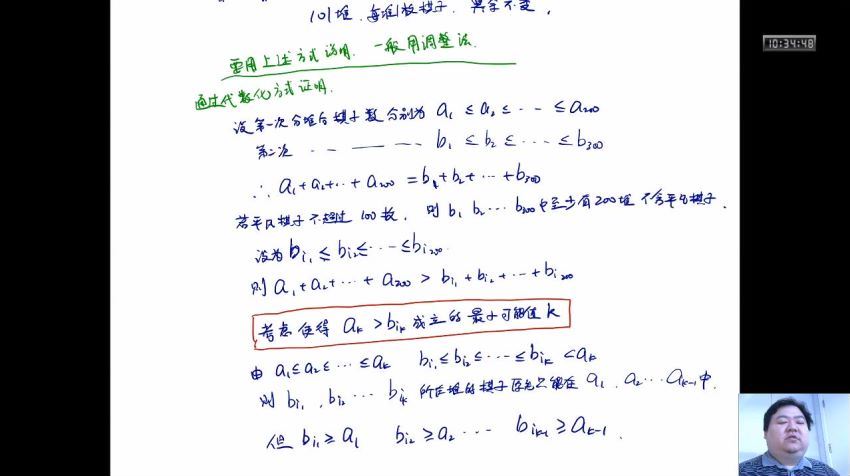 101堆，每堆1枚棋子，
10:34:48
要用上述方式说明，一般用调整法.
通过代数化方式证明.
设第一次分堆后棋子数分别为 a₁ ≤ a₂ ≤ ⋯ ≤ a₂₀₀
第二次 ⋯ — — — b₁ ≤ b₂ ≤ ⋯ ≤ b₃₀₀
∴ a₁+a₂+⋯+a₂₀₀ = b₁+b₂+⋯+b₃₀₀
若平凡棋子不超过100枚, 则 b₁ b₂⋯b₃₀₀中至少有200堆不含平凡棋子.
设为 bᵢ₁ ≤ bᵢ₂ ≤ ⋯ ≤ bᵢ₂₀₀.
则 a₁+a₂+⋯+a₂₀₀ > bᵢ₁+bᵢ₂+⋯+bᵢ₂₀₀
考虑使得 aₖ > bᵢₖ 成立的最小可能值 k
由 a₁≤a₂≤⋯≤aₖ bᵢ₁≤bᵢ₂≤⋯≤bᵢₖ <aₖ
则 bᵢ₁, bᵢ₂ ⋯ bᵢₖ 所在堆的棋子原先只能在 a₁, a₂⋯aₖ₋₁中.
但 bᵢ₁≥a₁ bᵢ₂≥a₂ ⋯ bᵢₖ₋₁≥aₖ₋₁.